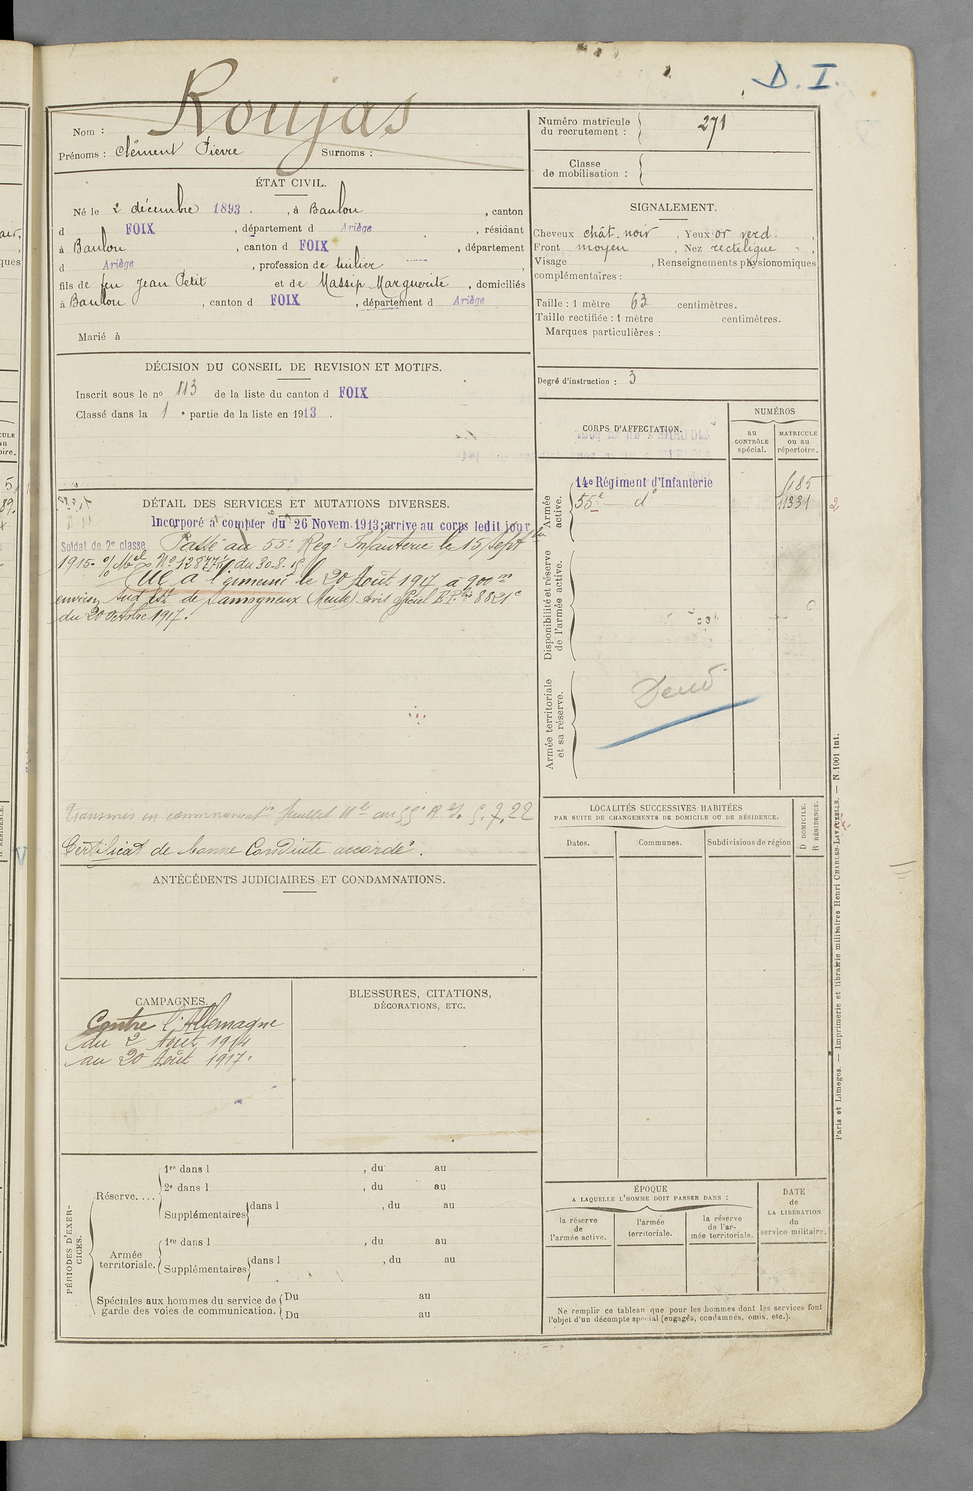 D. I.
Roujas
Nom :
Prénoms : Clément Pierre Surnoms :
Numéro matricule du recrutement : 271
Classe de mobilisation :
ÉTAT CIVIL.
Né le 2 décembre 1893. , à Baulou , canton
d FOIX , département d Ariège , résidant
à Baulou , canton d FOIX , département
d Ariège , profession de tuilier
fils de feu Jean Petit et de Massip Marguerite , domiciliés
à Baulou , canton d FOIX , département d Ariège
Marié à
SIGNALEMENT.
Cheveux chât. noir , Yeux or verd. ,
Front moyen , Nez rectiligne ,
Visage , Renseignements physionomiques
complémentaires :
Taille : 1 mètre 63 centimètres.
Taille rectifiée : 1 mètre centimètres.
Marques particulières :
Degré d'instruction : 3
DÉCISION DU CONSEIL DE REVISION ET MOTIFS.
Inscrit sous le no 113 de la liste du canton d FOIX
Classé dans la 1 e partie de la liste en 1913 .
DÉTAIL DES SERVICES ET MUTATIONS DIVERSES.
Incorporé à compter du 26 Novem. 1913; arrive au corps ledit jour
Soldat de 2e classe Passé au 55e Reg. Infanterie le 15 Sept
1915. du 30.8.15
Tué à l'ennemi le 20 Août 1917 à 900 m
environ Sud Est de Samogneux (Meuse) Avis officiel 8821
du 20 Octobre 1917.
feuillet Mle au 55e R. d'I. 5.7.22
Certificat de bonne Conduite accordé.
CORPS D'AFFECTATION.
NUMÉROS
AU CONTRÔLE spécial.
MATRICULE OU AU répertoire.
Armée active.
14e Régiment d'Infanterie
55e d°
11331
Disponibilité et réserve de l'armée active.
Armée territoriale et sa réserve.
ANTÉCÉDENTS JUDICIAIRES ET CONDAMNATIONS.
CAMPAGNES.
Contre l'Allemagne
du 2 Août 1914
au 20 Août 1917.
BLESSURES, CITATIONS,
DÉCORATIONS, ETC.
LOCALITÉS SUCCESSIVES HABITÉES
PAR SUITE DE CHANGEMENTS DE DOMICILE OU DE RÉSIDENCE.
Dates. Communes. Subdivisions de région
D DOMICILE.
R RÉSIDENCE.
PÉRIODES D'EXERCICES.
Réserve....
1re dans l , du au
2e dans l , du au
Supplémentaires dans l , du au
Armée territoriale.
1re dans l , du au
Supplémentaires dans l , du au
Spéciales aux hommes du service de garde des voies de communication.
Du au
Du au
ÉPOQUE
A LAQUELLE L'HOMME DOIT PASSER DANS :
la réserve de l'armée active.
l'armée territoriale.
la réserve de l'armée territoriale.
DATE DE LA LIBÉRATION du service militaire.
Ne remplir ce tableau que pour les hommes dont les services font
l'objet d'un décompte spécial (engagés, condamnés, omis, etc.).
Paris et Limoges. — Imprimerie et librairie militaires Henri CHARLES-LAVAUZELLE. — N. 1001 int.